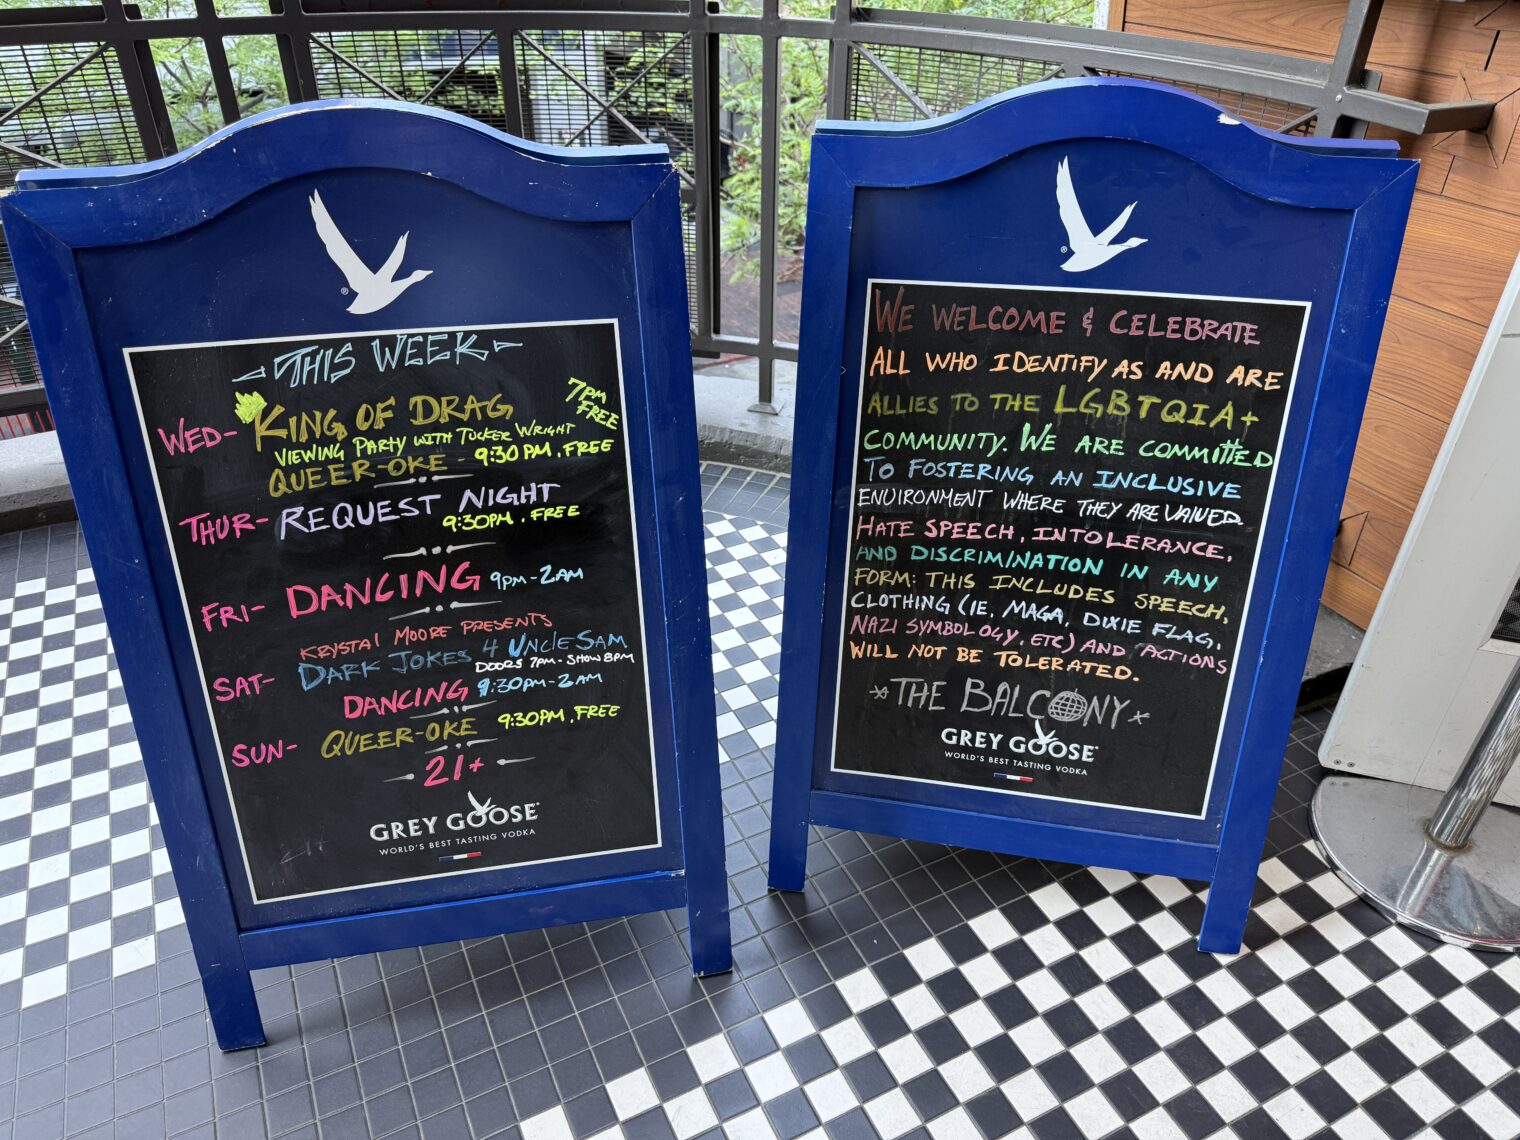 -THIS WEEK-
WED- KING OF DRAG 7PM FREE
VIEWING PARTY WITH TUCKER WRIGHT
QUEER-OKE - 9:30 PM, FREE
THUR- REQUEST NIGHT
9:30PM, FREE
FRI- DANCING 9PM-2AM
KRYSTAL MOORE PRESENTS
SAT- DARK JOKES 4 UNCLE SAM
DOORS 7PM - SHOW 8PM
DANCING 9:30PM-2AM
SUN- QUEER-OKE 9:30PM, FREE
-21+-
GREY GOOSE
WORLD'S BEST TASTING VODKA
WE WELCOME & CELEBRATE
ALL WHO IDENTIFY AS AND ARE
ALLIES TO THE LGBTQIA+
COMMUNITY. WE ARE COMMITTED
TO FOSTERING AN INCLUSIVE
ENVIRONMENT WHERE THEY ARE VALUED.
HATE SPEECH, INTOLERANCE,
AND DISCRIMINATION IN ANY
FORM: THIS INCLUDES SPEECH,
CLOTHING (IE, MAGA, DIXIE FLAG,
NAZI SYMBOLOGY, ETC) AND ACTIONS
WILL NOT BE TOLERATED.
THE BALCONY
GREY GOOSE
WORLD'S BEST TASTING VODKA